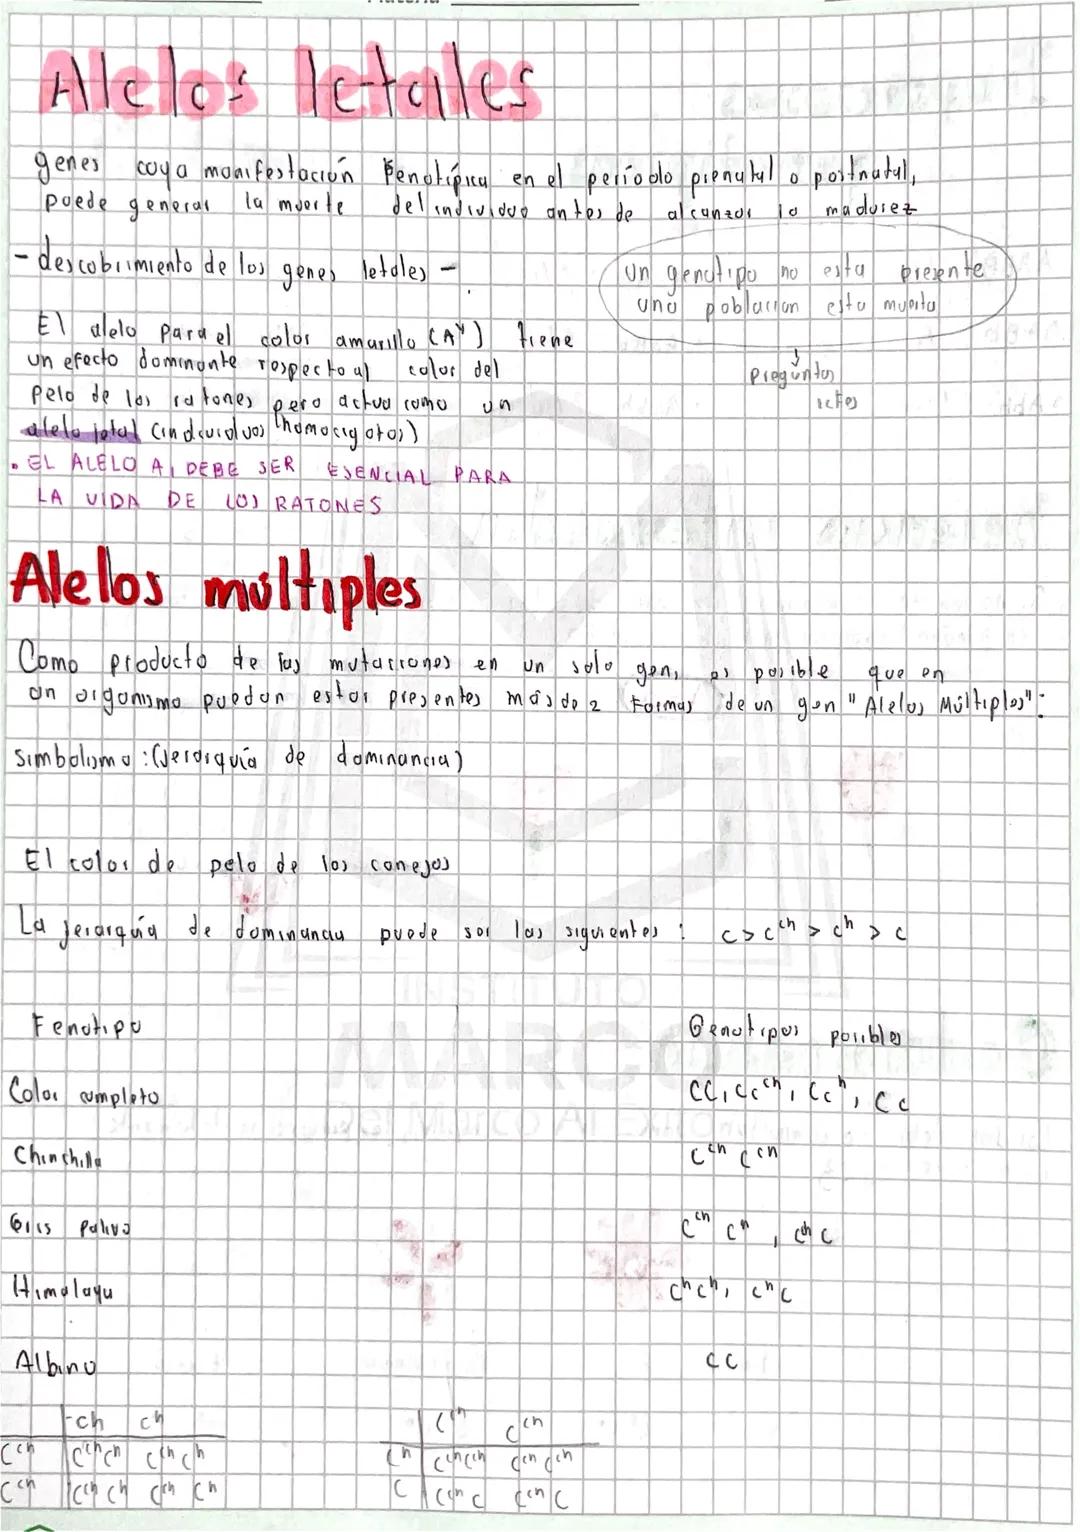 Alelos letales
genes cuya manifestación Fenotípica en el período prenatal o postnatal,
puede generar la muerte del individuo antes de alcanzar la madurez
- descubrimiento de los genes letales -
un genotipo no esta presente
una poblacion esta muerta
preguntas
El alelo para el color amarillo (Aʸ) tiene
un efecto dominante respecto al color del
pelo de los ratones pero actua como un
alelo letal (individuos homocigotos)
• EL ALELO A, DEBE SER ESENCIAL PARA
LA VIDA DE LOS RATONES
Alelos múltiples
Como producto de las mutaciones en un solo gen, es posible que en
un organismo puedan estar presentes más de 2 Formas de un gen "Alelos Múltiples":
simbolismo: (Jerarquía de dominancia)
El color de pelo de los conejos
La jerarquía de dominancia puede ser las siguientes: c > cᶜʰ > cʰ > c
Fenotipo Genotipos posibles
Color completo CC, Ccᶜʰ, Ccʰ, Cc
Chinchilla cᶜʰ cᶜʰ
Gris palivo cᶜʰ cʰ, cᶜʰ c
Himalaya cʰcʰ, cʰc
Albino cc
ch ch
Cᶜʰ Cᶜʰcʰ Cᶜʰcʰ
Cᶜʰ Cᶜʰcʰ Cᶜʰcʰ
Cᶜʰ Cᶜʰ
Cʰ CʰCᶜʰ CʰCᶜʰ
C Cᶜʰc Cᶜʰc
MARCO